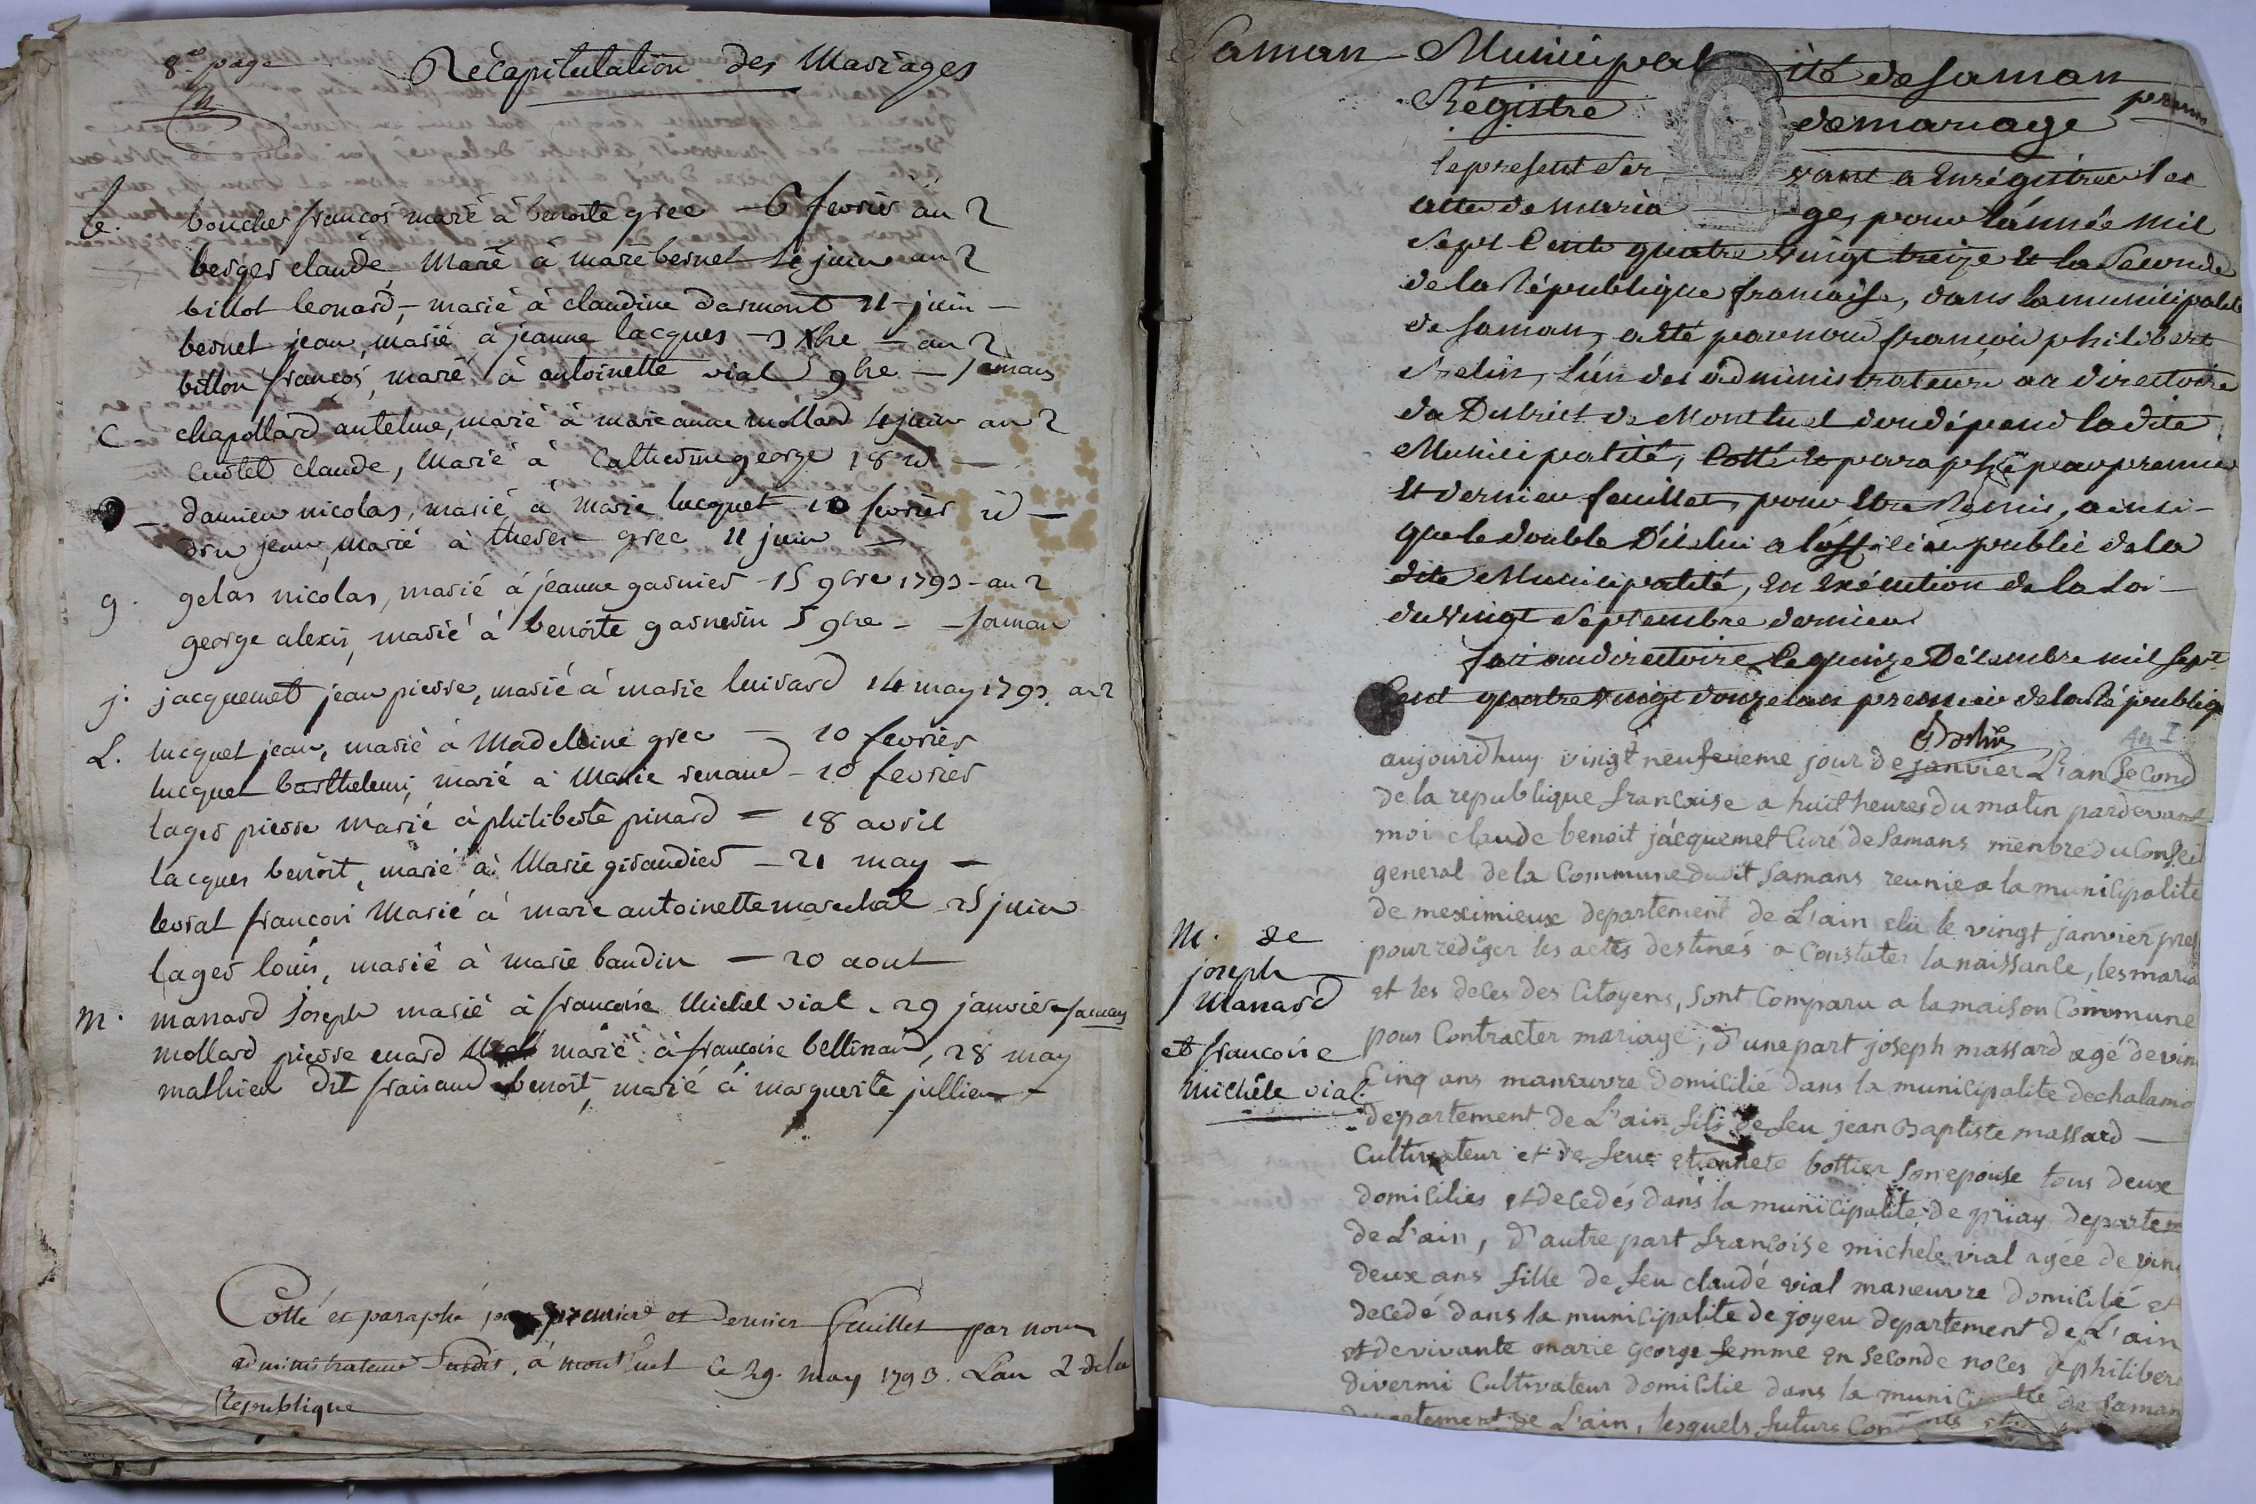 8e page
Récapitulation des Mariages
b. boucher françois marié à benoite grec - 6 fevrier an 2
berger claude marié à marie bernet 4 juin an 2
billot leonard, - marié à claudine darmont 11 juin -
bernet jean, marié à jeanne lacques - 3 xbre - an 2
billon françois, marié à antoinette vial 5 9bre - Samans
C - chapollard antelme, marié à marieanne mollard 4 juin an 2
curtet claude, marié à Catherine george 18 id -
D - damieu nicolas, marié à marie lucquet 10 fevrier id -
dru jean, marié à therese grec 11 juin -
g. gelas nicolas, marié à jeanne garnier - 15 9bre 1793 - an 2
george alexis, marié à benoite garnerin 5 9bre - - Saman
j. jacquemet jean pierre, marié à marie luisard 14 may 1793 an 2
L. lucquet jean, marié à Madeleine grec - 10 fevrier
lucquet barthelemi, marié à Marie renaud - 10 fevrier
lager pierre marié à philiberte pinard = 18 avril
lacques benoit, marié à Marie girandier - 21 may -
levrat françois Marié à marie antoinette marechal 25 juin
lager louis, marié à marie baudin - 20 aout
M. massard Joseph marié à françoise Michel vial - 29 janvier - Saman
mollard pierre marié à françoise bellinard, 28 may
mathieu dit fraisand benoit, marié à marguerite jullien -
Cotté et paraphé par premier et dernier feuillet par nous
administrateur susdit, à montluel ce 29. may 1793. L'an 2 de la
République
Saman - Municipalité de Saman
premier
Régistre de mariage
le present servant a Enrégistrer les
actes de mariages, pour l'année mil
Sept Cents quatre vingt treize et la Seconde
de la République française, dans la municipalité
de Saman, a été par nous françois philibert
l'un des administrateurs au directoire
du District de Montluel dont dépend ladite
Municipalité, Cotté et paraphé par premier
et dernier feuillet, pour être Remis, ainsi
que le double D'icelui a l'officier public de la
dite Municipalité, en exécution de la Loi
du vingt septembre dernier
fait au directoire le quinze Décembre mil Sept
Cent quatre vingt douze l'an premier de la Républiq
An I
aujourd'huy vingt neufvieme jour de janvier L'an second
de la republique françoise a huit heures du matin pardevant
moi claude benoit jacquemet Curé de Samans menbre du Conseil
general de la Commune dudit Samans reunie a la municipalite
de meximieux departement de L'ain elu le vingt janvier pres
pour rediger les actes destinés a Constater la naissance, les maria
et les deces des Citoyens, sont Comparu a la maison Commune
pour Contracter mariage, d'une part joseph massard agé de vin
Cinq ans manœuvre domicilié dans la municipalite de chalamo
departement de L'ain fils de feu jean Baptiste massard -
Cultivateur et de feue etiennete bottier son epouse tous deux
domicilies et decedés dans la municipalite de priay departem
de L'ain, d'autre part françoise michele vial agée de vin
deux ans fille de feu claude vial maneuvre domicilié et
decedé dans la municipalite de joyeu departement de L'ain
et de vivante marie George femme en seconde noces de philiber
divermi Cultivateur domicilie dans la municipalite de Saman
departement de L'ain, lesquels futurs
M. de
joseph
Massard
et françoise
michèle vial